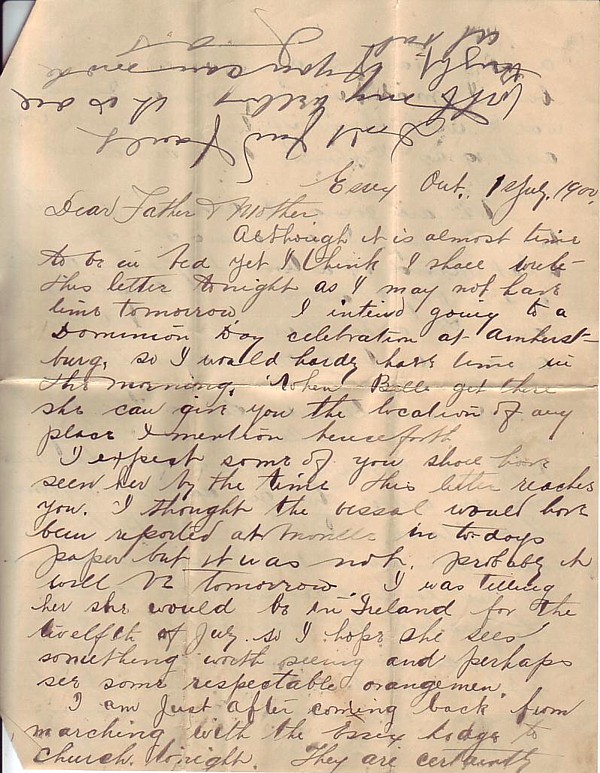 Essex Ont. 1st July, 1900.
Dear Father & Mother
Although it is almost time
to be in bed yet I think I shall write
this letter tonight as I may not have
time tomorrow I intend going to a
Dominion Day celebration at Amherst-
burg, so I would hardy have time in
the morning. When Belle get there
she can give you the location of any
place I mention henceforth
I expect some of you shall have
seen her by the time this letter reaches
you. I thought the vessal would have
been reported at Moville in todays
paper but it was not, probably it
will be tomorrow. I was telling
her she would be in Ireland for the
twelfth of July so I hope she sees
something worth seeing and perhaps
see some respectable orangemen
I am just after coming back from
marching with the Essex Lodge to
church tonight. They are certainly